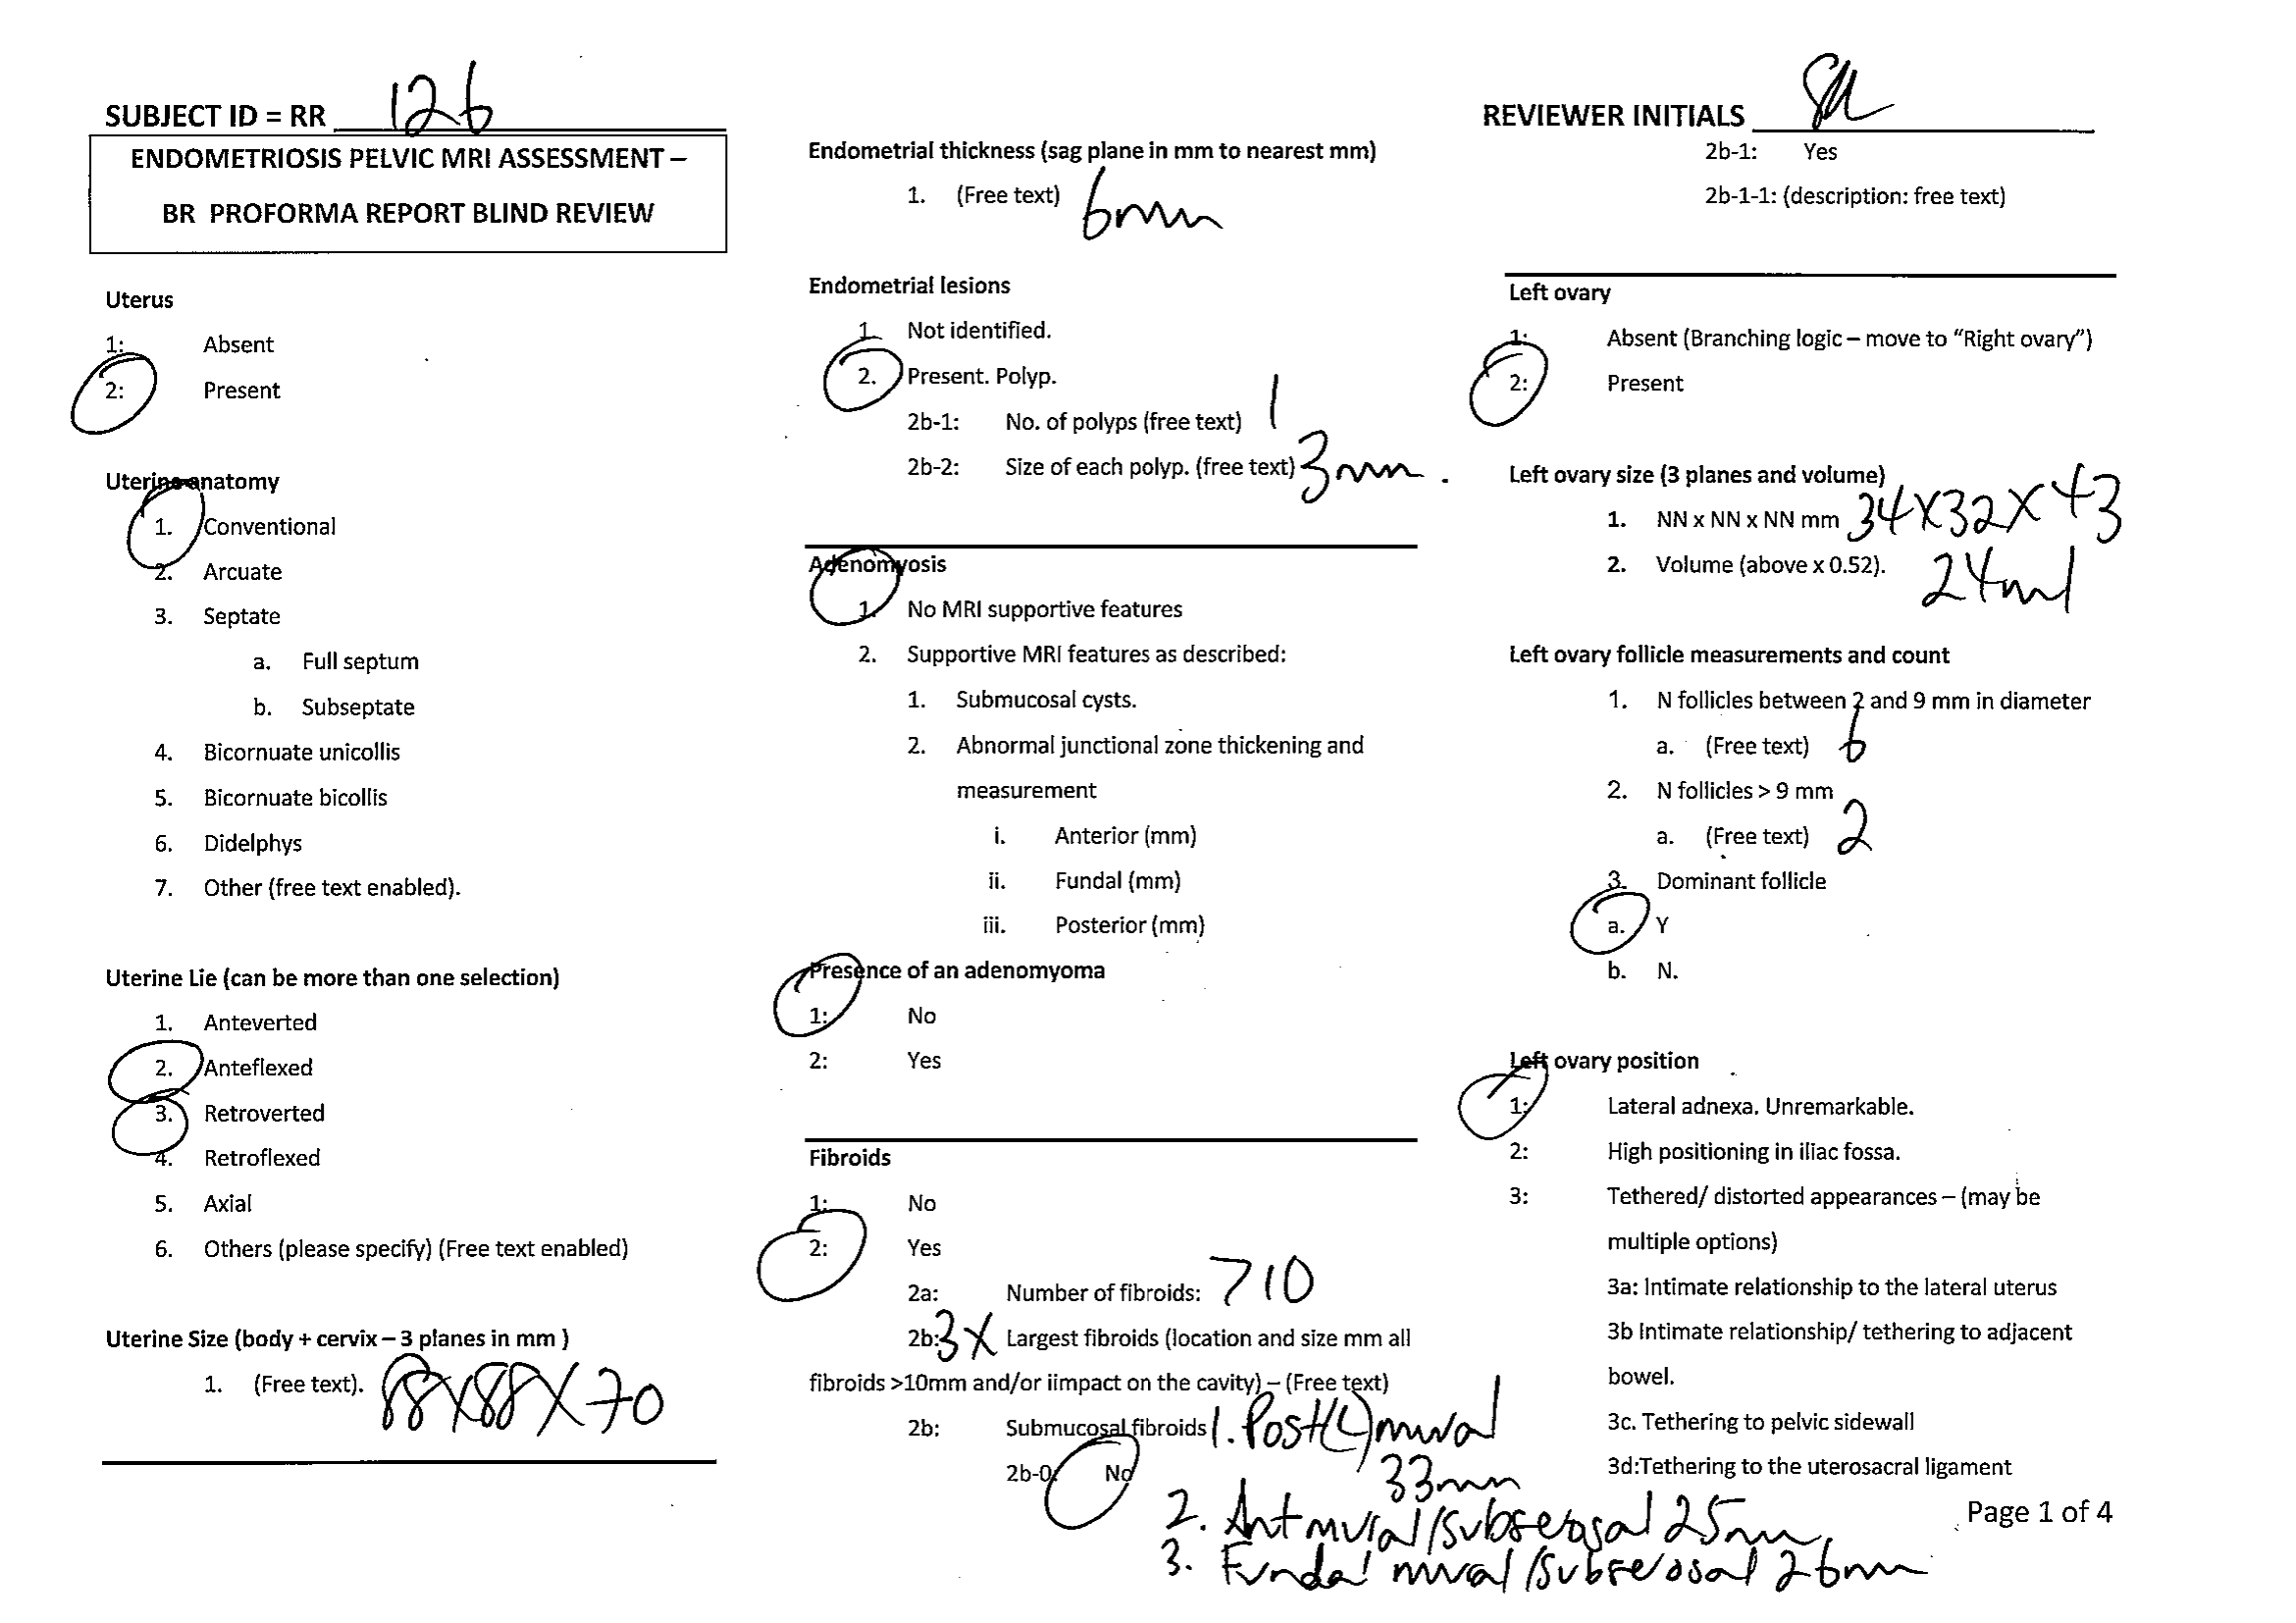 SUBJECT ID = RR 126
ENDOMETRIOSIS PELVIC MRI ASSESSMENT –
BR PROFORMA REPORT BLIND REVIEW
Uterus
1: Absent
2: Present
Uterine anatomy
1. Conventional
2. Arcuate
3. Septate
a. Full septum
b. Subseptate
4. Bicornuate unicollis
5. Bicornuate bicollis
6. Didelphys
7. Other (free text enabled).
Uterine Lie (can be more than one selection)
1. Anteverted
2. Anteflexed
3. Retroverted
4. Retroflexed
5. Axial
6. Others (please specify) (Free text enabled)
Uterine Size (body + cervix – 3 planes in mm )
1. (Free text). 88x88x70
Endometrial thickness (sag plane in mm to nearest mm)
1. (Free text) 6mm
Endometrial lesions
1. Not identified.
2. Present. Polyp.
2b-1: No. of polyps (free text) 1
2b-2: Size of each polyp. (free text) 3mm.
Adenomyosis
1. No MRI supportive features
2. Supportive MRI features as described:
1. Submucosal cysts.
2. Abnormal junctional zone thickening and
measurement
i. Anterior (mm)
ii. Fundal (mm)
iii. Posterior (mm)
Presence of an adenomyoma
1: No
2: Yes
Fibroids
1: No
2: Yes
2a: Number of fibroids: >10
2b: 3x Largest fibroids (location and size mm all
fibroids >10mm and/or iimpact on the cavity) – (Free text)
2b: Submucosal fibroids 1. Post (L) mural
2b-0: No 33mm
2. Ant mural/subserosal 25mm
3. Fundal mural/subserosal 26mm
REVIEWER INITIALS
2b-1: Yes
2b-1-1: (description: free text)
Left ovary
1: Absent (Branching logic – move to “Right ovary”)
2: Present
Left ovary size (3 planes and volume)
1. NN x NN x NN mm 34x32x43
2. Volume (above x 0.52). 24ml
Left ovary follicle measurements and count
1. N follicles between 2 and 9 mm in diameter
a. (Free text) 6
2. N follicles > 9 mm
a. (Free text) 2
3. Dominant follicle
a. Y
b. N.
Left ovary position
1: Lateral adnexa. Unremarkable.
2: High positioning in iliac fossa.
3: Tethered/ distorted appearances – (may be
multiple options)
3a: Intimate relationship to the lateral uterus
3b Intimate relationship/ tethering to adjacent
bowel.
3c. Tethering to pelvic sidewall
3d:Tethering to the uterosacral ligament
Page 1 of 4